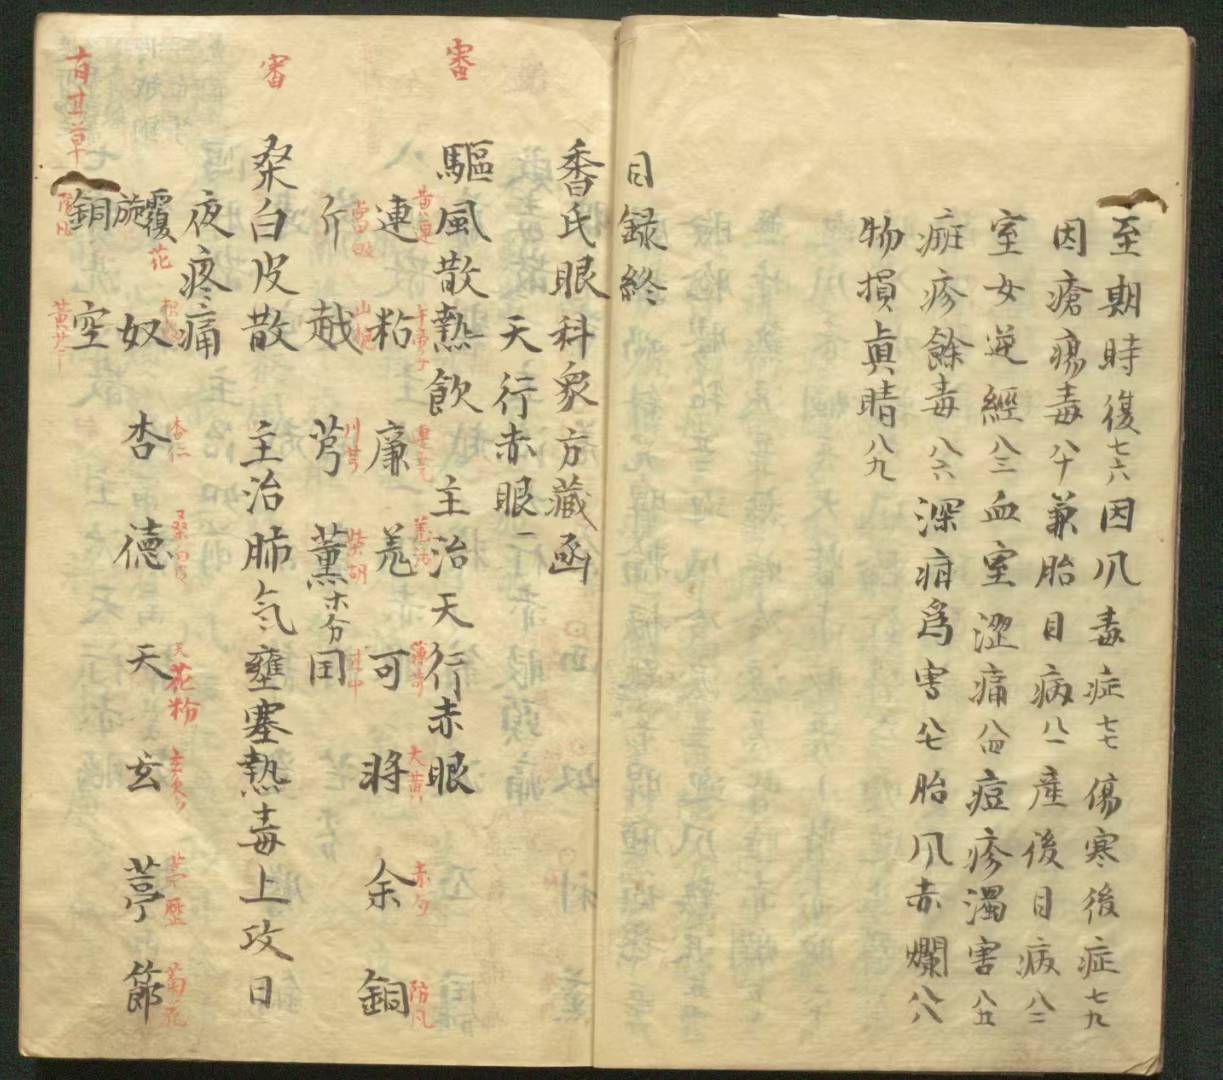 至期時復七六因爪毒症七七傷寒後症七九
因瘡瘍毒八十兼胎目病八一産後目病八二
室女逆經八三血室澀痛八四痘疹濁害八五
痘疹餘毒八六深疳爲害八七胎爪赤爛八八
物損眞睛八九
目録終
香氏眼科衆方藏函
天行赤眼一
審
驅風散熱飲 主治天行赤眼
連 粘 廉 羌 可 將 余 銅
黄連 牛旁子 羌活 薄荷 大黄 赤勺 防凡
亇 越 芎 薫 木分 囯
山梔 川芎 柴胡
審
桑白皮散 主治肺气壅塞熱毒上攻日
夜疼痛
覆旋 奴 杏 德 天 玄 葶 節
花 杏仁 桑白皮 天花粉 玄參 葶歷 菊花
銅 空
防凡 黄芩
甘草